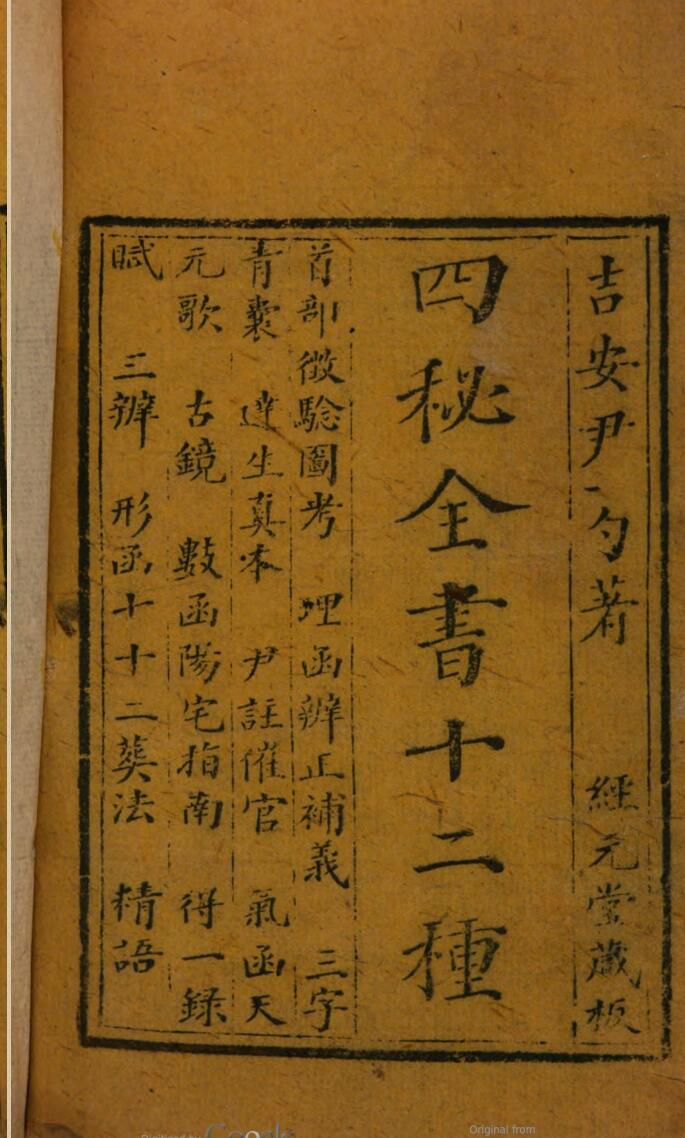 吉安尹一勺著　經元堂藏板
四秘全書十二種
首部徵驗圖考　理函辨正補義　三字
青囊　達生真本　尹註催官　氣函天
元歌　古鏡　數函陽宅指南　得一録
賦　三辨　形函十十二葬法　精語
Digitized by Google
Original from